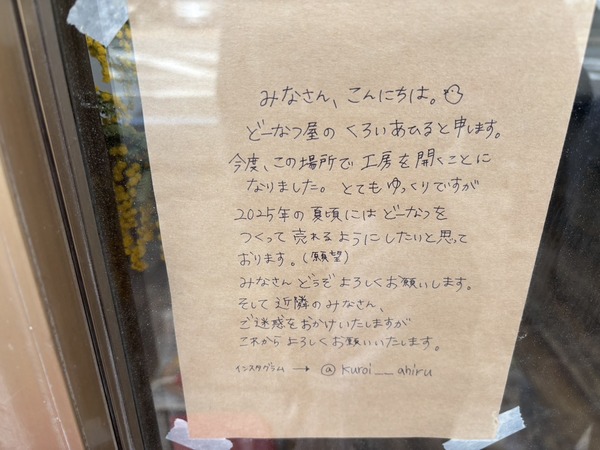 みなさん、こんにちは。
どーなつ屋の くろいあひると申します。
今度、この場所で 工房を開くことに
なりました。 とてもゆっくりですが
2025年の夏頃には どーなつを
つくって 売れるようにしたいと思って
おります。(願望)
みなさん どうぞ よろしくお願いします。
そして 近隣のみなさん、
ご迷惑をおかけいたしますが
これから よろしくお願いいたします。
インスタグラム → @ kuroi__ahiru